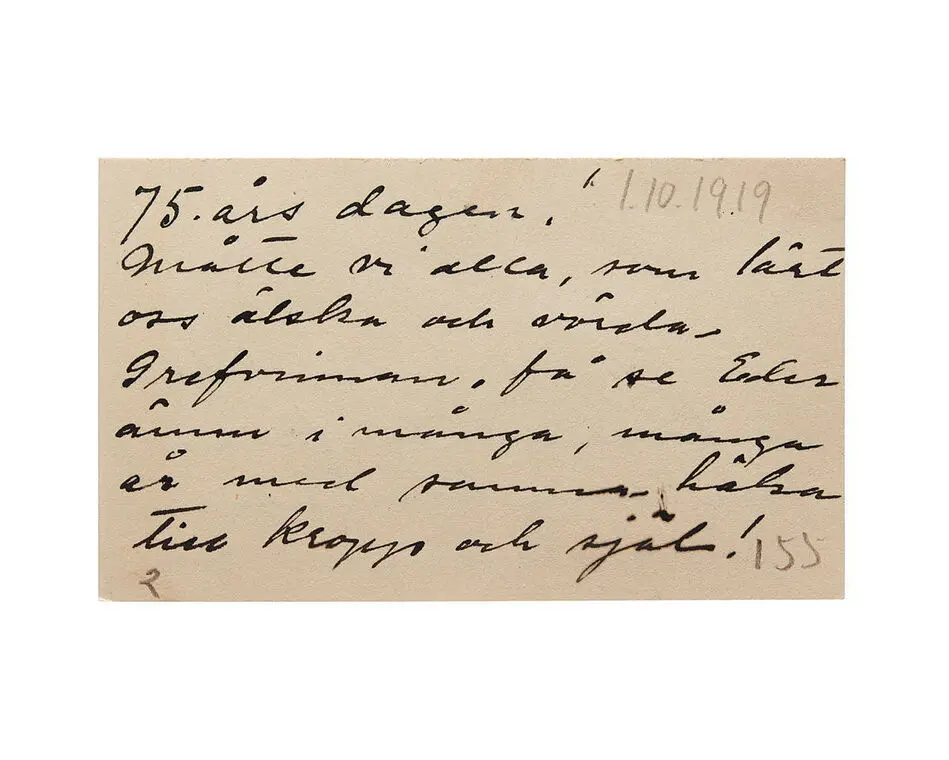 75-års dagen. 1.10.1919
Måtte vi alla, som lärt
oss älska och vörda
Grefvinnan, få se Eder
ännu i många, många
år med samma hälsa
till kropp och själ! 155
2